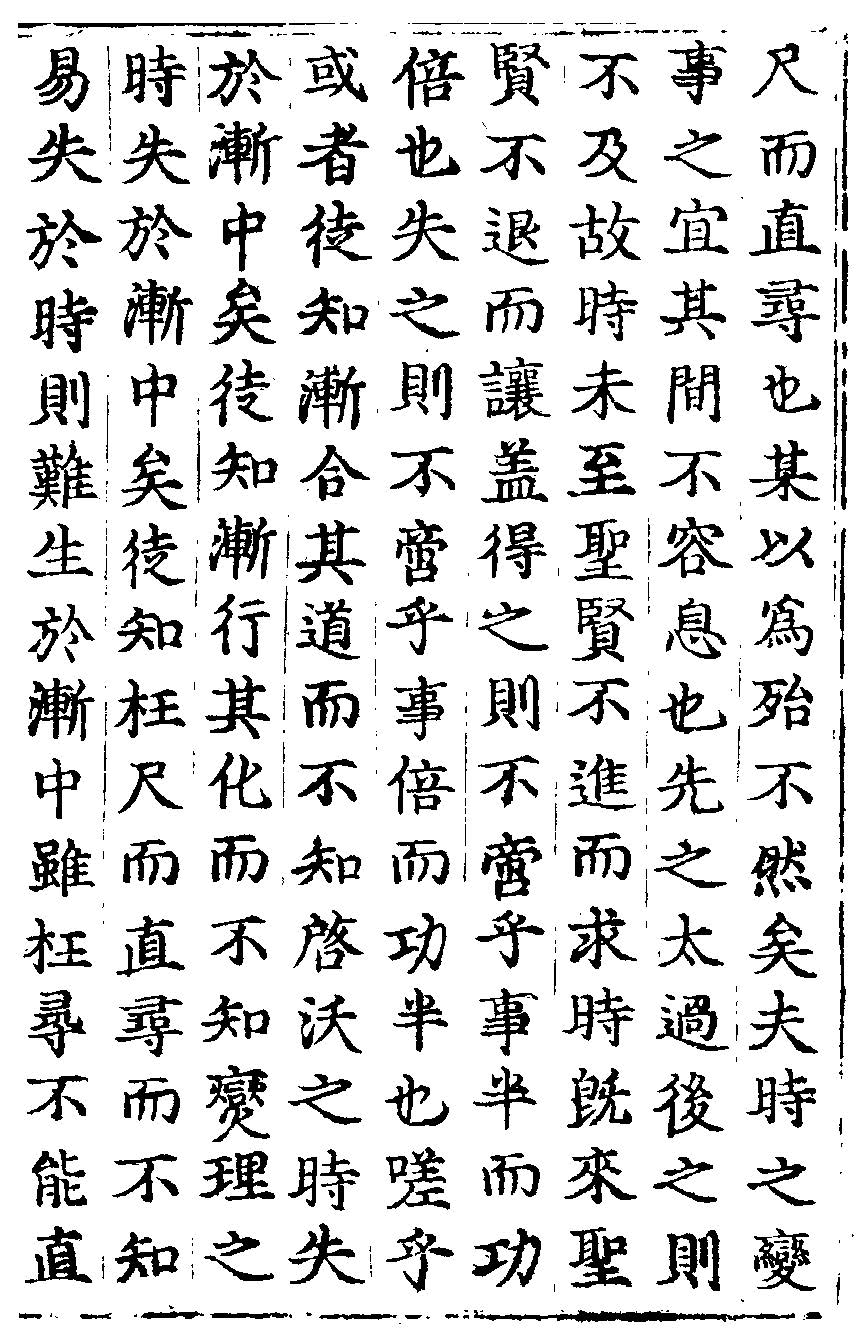 尺而直尋也某以為殆不然矣夫時之變
事之宜其間不容息也先之太過後之則
不及故時未至聖賢不進而求時旣來聖
賢不退而讓盖得之則不啻乎事半而功
倍也失之則不啻乎事倍而功半也嗟乎
或者徒知漸合其道而不知啓沃之時失
於漸中矣徒知漸行其化而不知爕理之
時失於漸中矣徒知枉尺而直尋而不知
易失於時則難生於漸中雖枉尋不能直